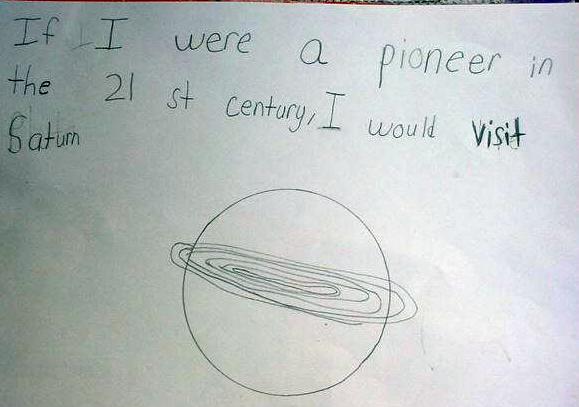 If I were a pioneer in
the 21 st century, I would visit
Saturn